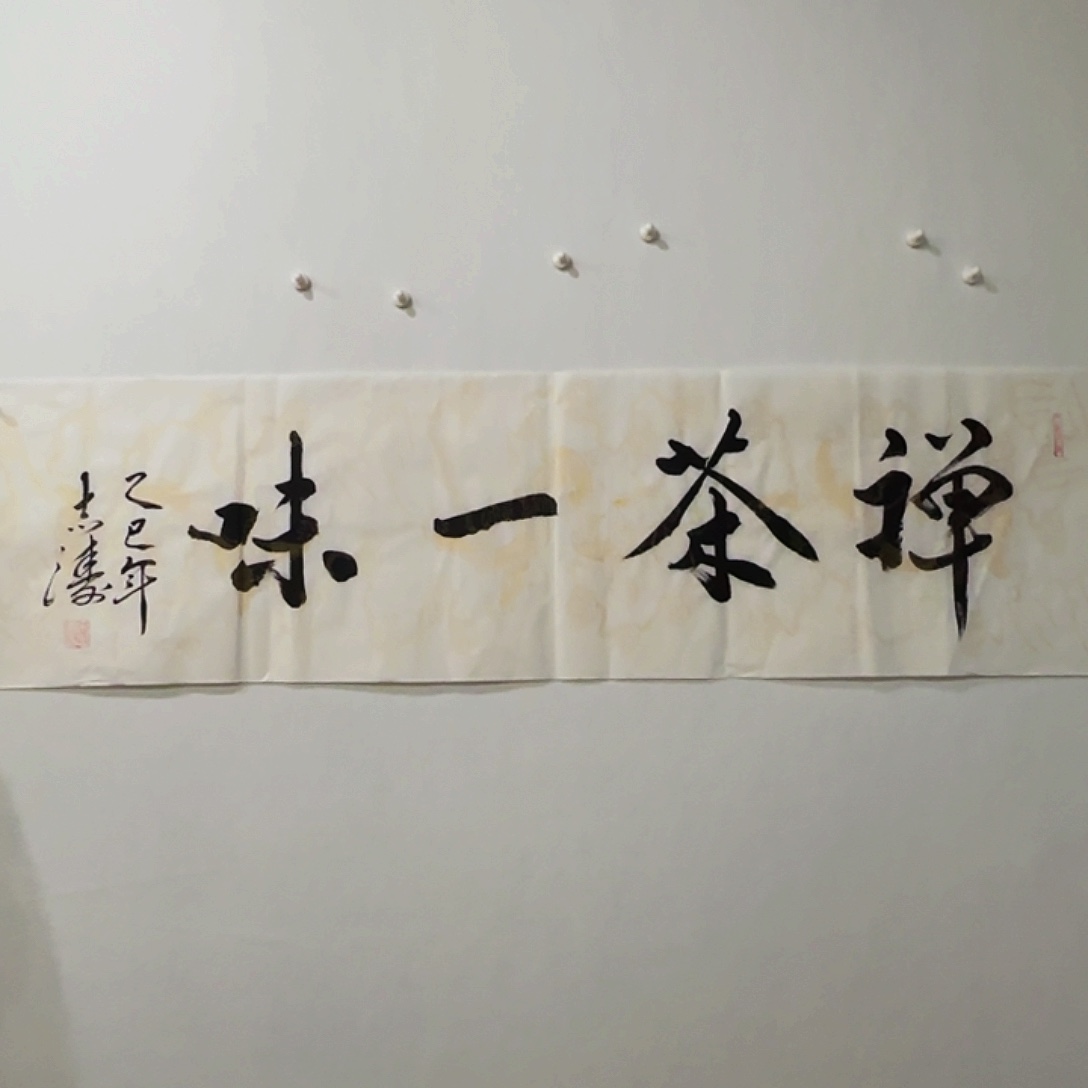 禅茶一味
乙巳年
志涛